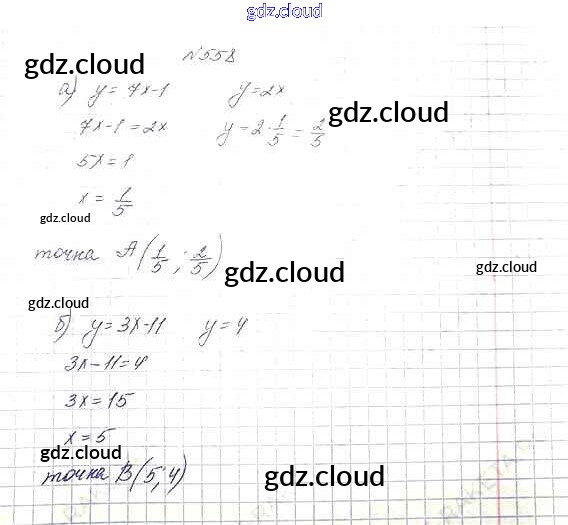 gdz.cloud
№558
gdz.cloud
а) y = 7x-1 y = 2x
gdz.cloud
7x-1 = 2x y = 2·1/5 = 2/5
5x = 1
x = 1/5
gdz.cloud
точка A(1/5; 2/5)
gdz.cloud gdz.cloud
gdz.cloud
б) y = 3x-11 y = 4
3x-11=4
3x = 15
x = 5
gdz.cloud
точка B(5; 4)
gdz.cloud